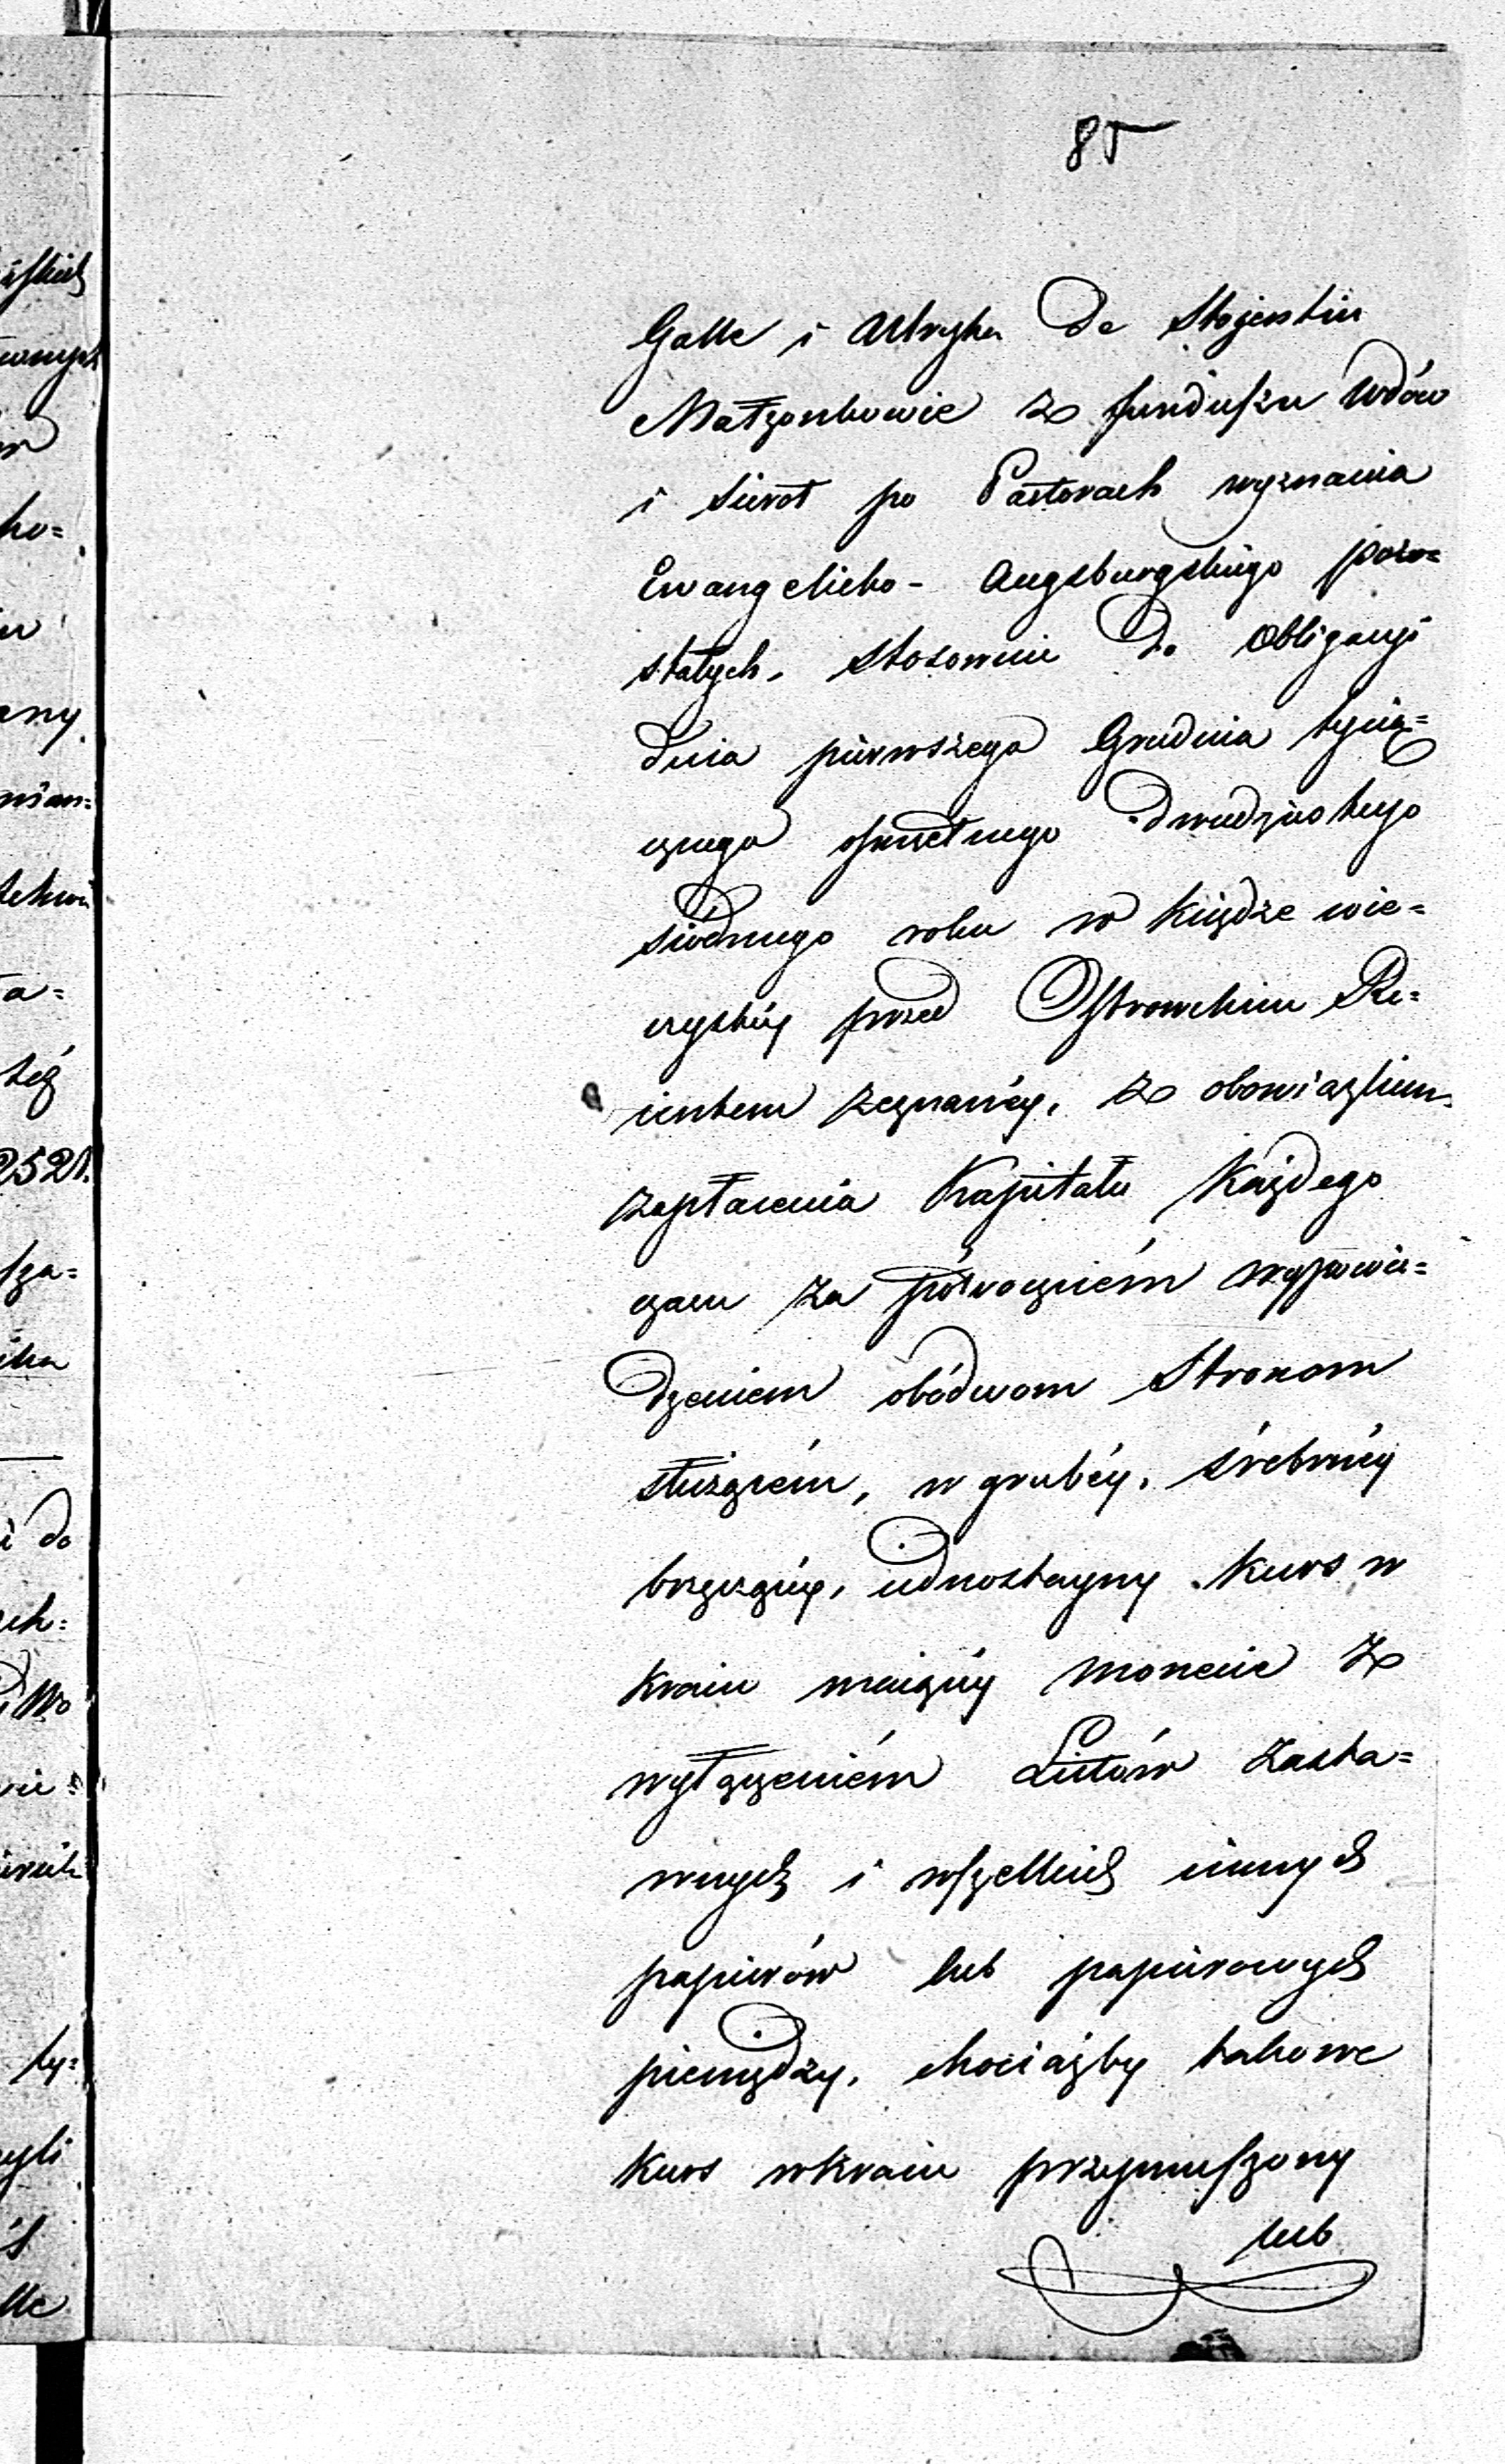 85
Galle i Ulryka De Stojentin
Małżonkowie z funduszu wdów
i sierot po Pastorach wyznania
Ewangelicko - Augsburgskiego pozo=
stałych, stosownie do obligacyi
dnia pierwszego Grudnia tysią=
cznego ośmsetnego dwudziestego
siódmego roku w księdze wie=
czystéy przed Ostrowskim Re=
ientem zeznanéy, z obowiązkiem
zapłacenia Kapitału każdego
czasu za półrocznem wypowie=
dzeniem obódwom Stronom
służącém, w grubéy, śrebrnéy
brzęczącéy, iednostayny kurs w
Kraiu maiącéy monecie z
wyłączeniém Listów zasta=
wnych i wszelkich innych
papierów lub papierowych
pieniędzy, chociażby takowe
kurs w kraiu przymuszony
lub